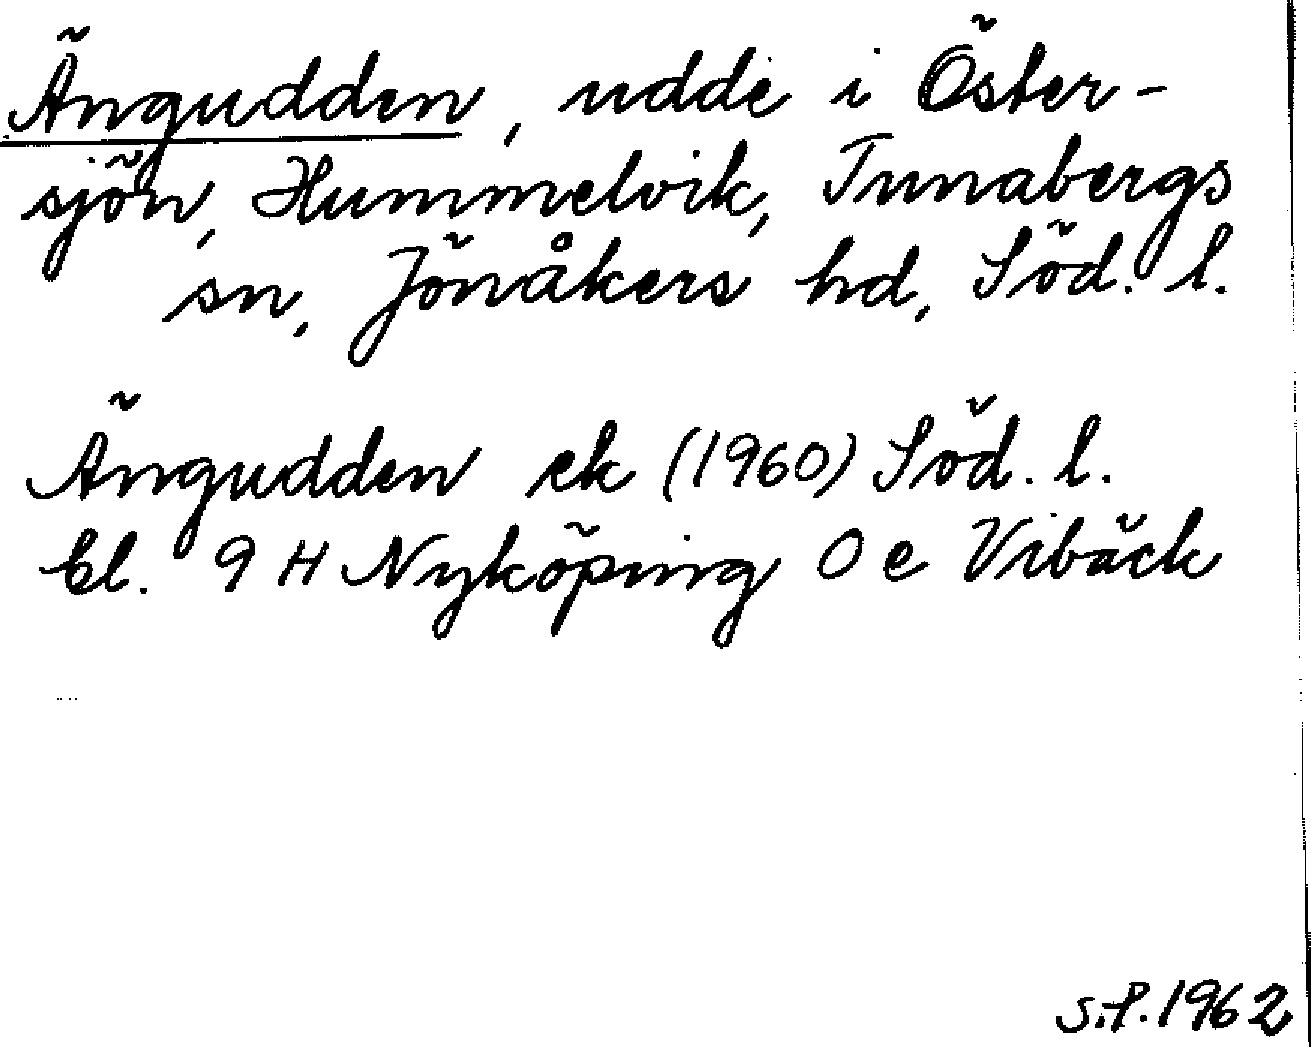 Ängudden, udde i Öster-
sjön, Hummelvik, Tunabergs
sn, Jönåkers hd, Söd. l.
Ängudden ek (1960) Söd. l.
bl. 9 H Nyköping O e Vibäck
S.P. 1962